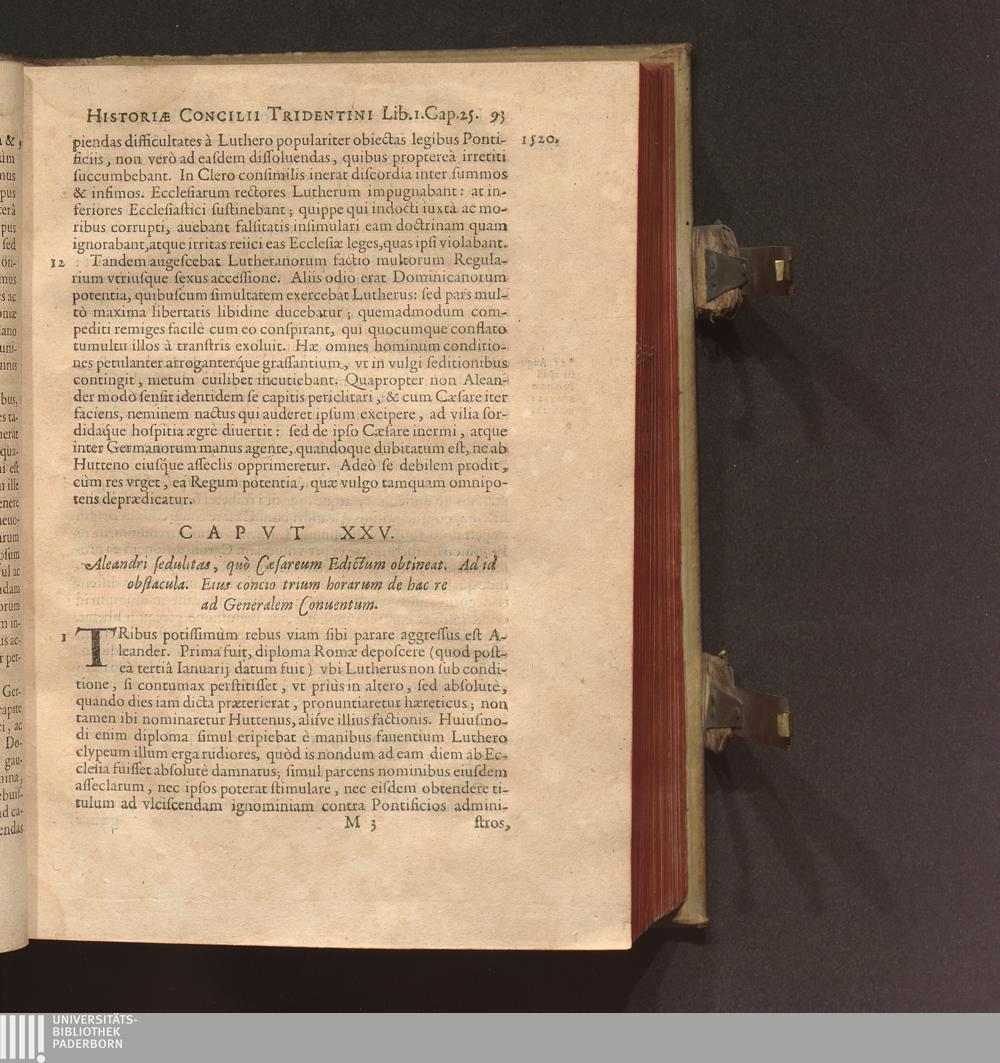 HISTORIÆ CONCILII TRIDENTINI Lib.1.Cap.25. 93
piendas difficultates à Luthero populariter obiectas legibus Ponti- 1520.
ficiis, non verò ad easdem dissoluendas, quibus proptereà irretiti
succumbebant. In Clero consimilis inerat discordia inter summos
& infimos. Ecclesiarum rectores Lutherum impugnabant: at in-
feriores Ecclesiastici sustinebant; quippe qui indocti iuxtà ac mo-
ribus corrupti, auebant falsitatis insimulari eam doctrinam quam
ignorabant,atque irritas reiici eas Ecclesiæ leges,quas ipsi violabant.
12 Tandem augescebat Lutheranorum factio multorum Regula-
rium vtriusque sexus accessione. Aliis odio erat Dominicanorum
potentia, quibuscum simultatem exercebat Lutherus: sed pars mul-
tò maxima libertatis libidine ducebatur; quemadmodum com-
pediti remiges facilè cum eo conspirant, qui quocumque conflato
tumultu illos à transtris exoluit. Hæ omnes hominum conditio-
nes petulanter arroganterq́ue grassantium, vt in vulgi seditionibus
contingit, metum cuilibet incutiebant. Quapropter non Alean-
der modò sensit identidem se capitis periclitari, & cum Cæsare iter
faciens, neminem nactus qui auderet ipsum excipere, ad vilia sor-
didaq́ue hospitia ægrè diuertit: sed de ipso Cæsare inermi, atque
inter Germanorum manus agente, quandoque dubitatum est, ne ab
Hutteno eiusq́ue asseclis opprimeretur. Adeò se debilem prodit,
cùm res vrget, ea Regum potentia, quæ vulgo tamquam omnipo-
tens deprædicatur.
CAPVT XXV.
Aleandri sedulitas, quò Cæsareum Edictum obtineat. Ad id
obstacula. Eius concio trium horarum de hac re
ad Generalem Conuentum.
1 TRibus potissimùm rebus viam sibi parare aggressus est A-
leander. Prima fuit, diploma Romæ deposcere (quod post-
eà tertiâ Ianuarij datum fuit) vbi Lutherus non sub condi-
tione, si contumax perstitisset, vt priùs in altero, sed absolutè,
quando dies iam dicta præterierat, pronuntiaretur hæreticus; non
tamen ibi nominaretur Huttenus, aliîve illius factionis. Huiusmo-
di enim diploma simul eripiebat è manibus fauentium Luthero
clypeum illum erga rudiores, quòd is nondum ad eam diem ab Ec-
clesia fuisset absolutè damnatus; simul parcens nominibus eiusdem
asseclarum, nec ipsos poterat stimulare, nec eisdem obtendere ti-
tulum ad vlciscendam ignominiam contra Pontificios admini-
M 3 stros,
UNIVERSITÄTS-
BIBLIOTHEK
PADERBORN